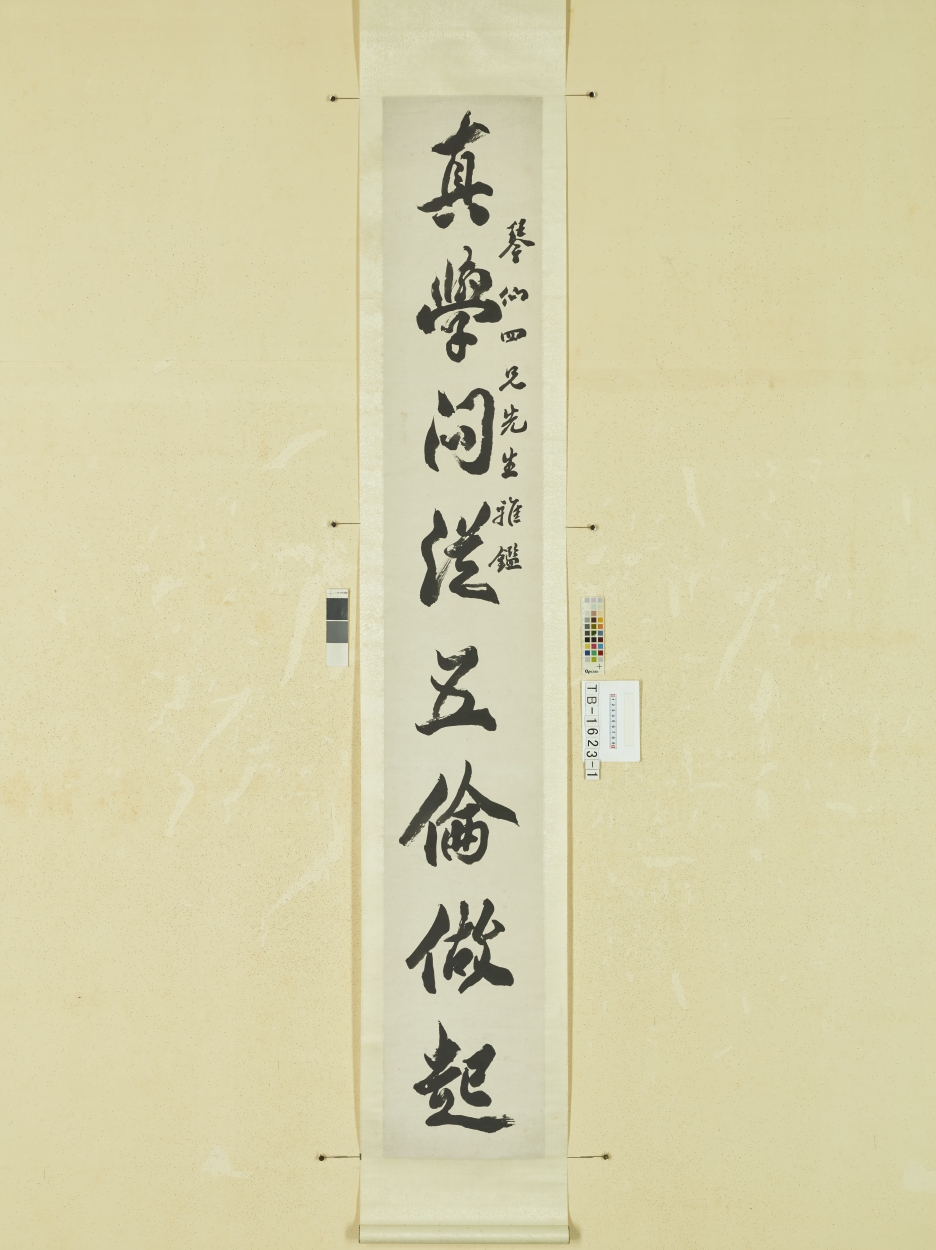 琴仙四兄先生雅鑑
真學問從五倫做起
TB-1623-1